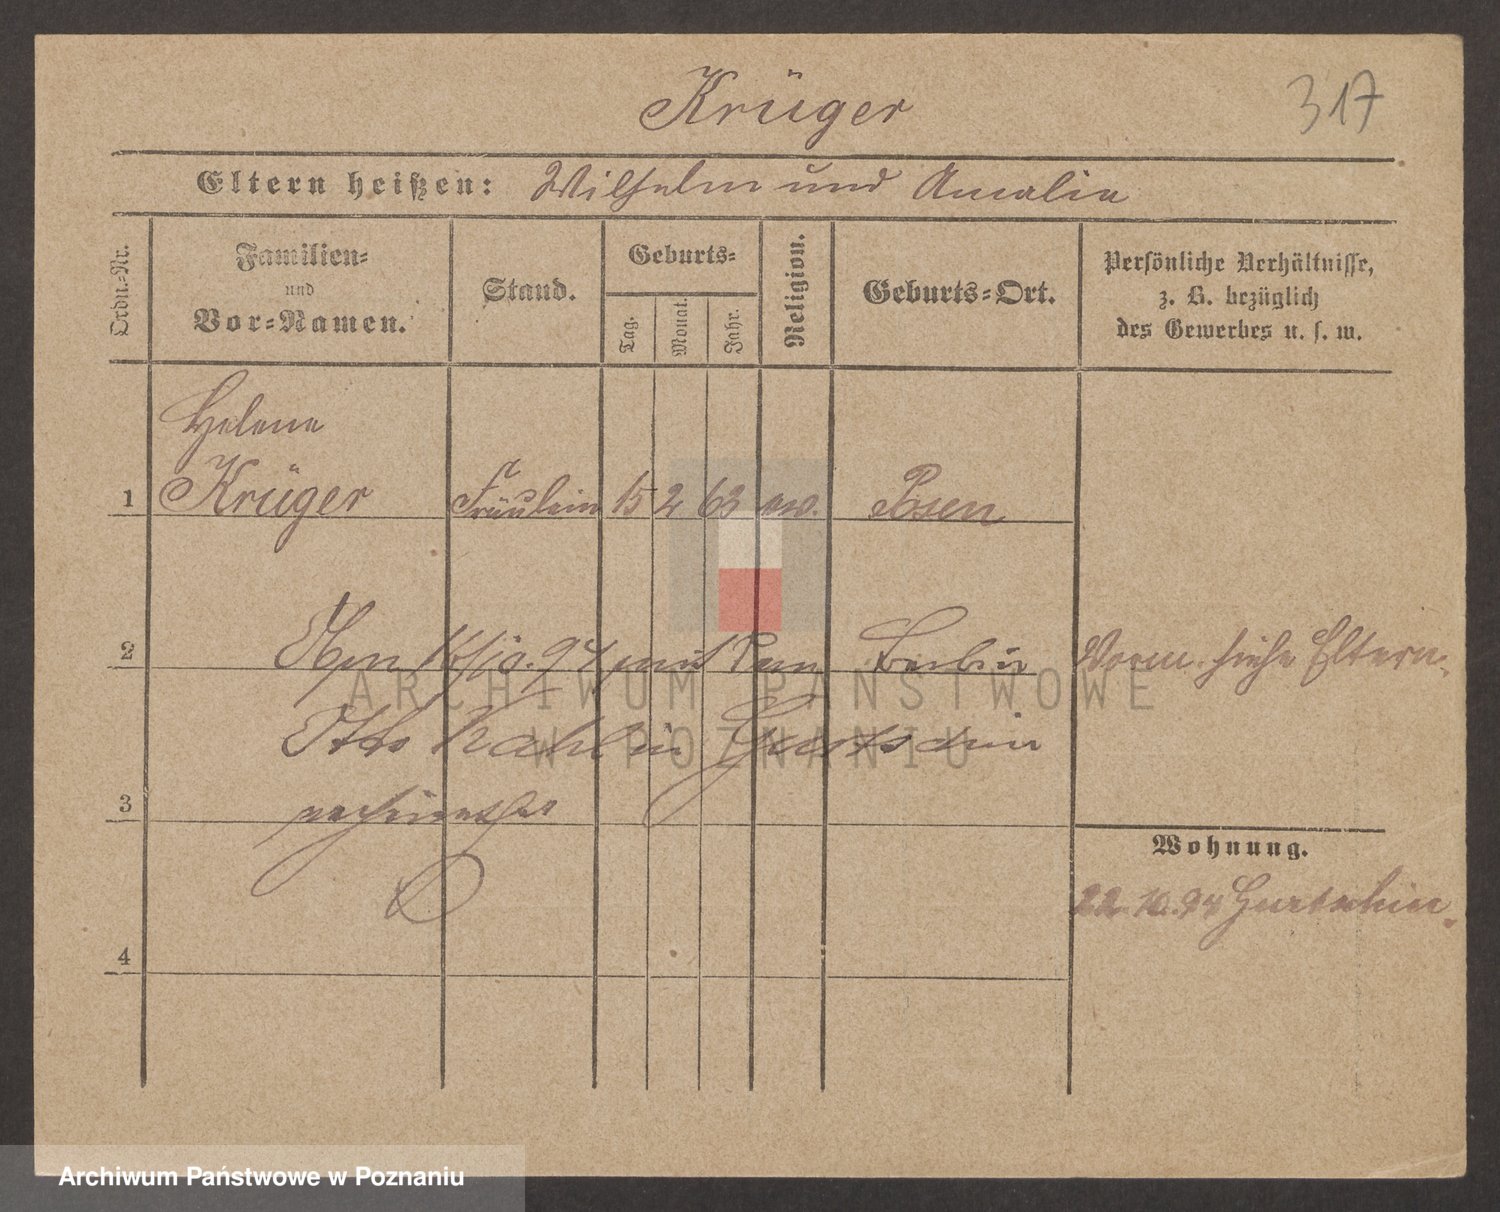 Krüger
317
Eltern heißen: Wilhelm und Amalie
Ordn.-Nr.
Familien-
und
Vor-Namen.
Stand.
Geburts-
Tag.
Monat.
Jahr.
Religion.
Geburts-Ort.
Persönliche Verhältnisse,
z. B. bezüglich
des Gewerbes u. s. w.
Helene
1 Krüger Fräulein 15 2 63 ev. Posen
2 10.94 mit dem
Vorm. siehe Eltern.
Otto in Gurtschin
3 verheirathet
Wohnung.
22.10.94 Gurtschin.
4
ARCHIWUM PAŃSTWOWE
W POZNANIU
Archiwum Państwowe w Poznaniu